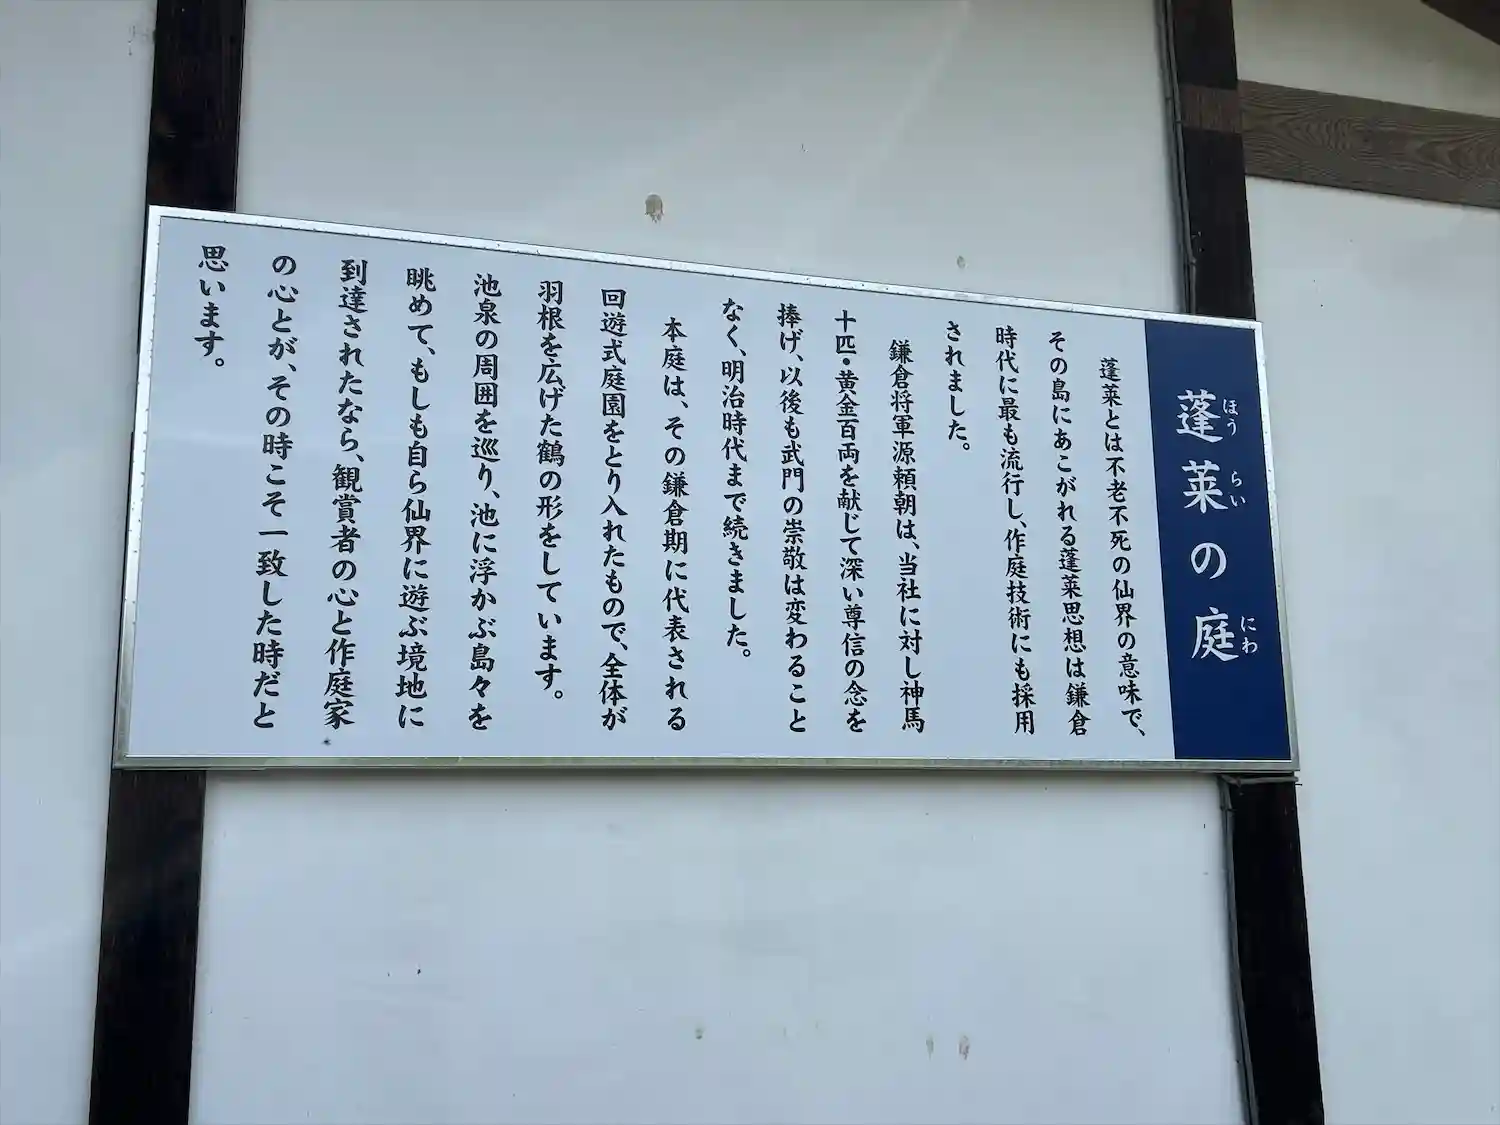 蓬莱の庭
ほう
らい
にわ
蓬莱とは不老不死の仙界の意味で、
その島にあこがれる蓬莱思想は鎌倉
時代に最も流行し、作庭技術にも採用
されました。
鎌倉将軍源頼朝は、当社に対し神馬
十匹・黄金百両を献じて深い尊信の念を
捧げ、以後も武門の崇敬は変わること
なく、明治時代まで続きました。
本庭は、その鎌倉期に代表される
回遊式庭園をとり入れたもので、全体が
羽根を広げた鶴の形をしています。
池泉の周囲を巡り、池に浮かぶ島々を
眺めて、もしも自ら仙界に遊ぶ境地に
到達されたなら、観賞者の心と作庭家
の心とが、その時こそ一致した時だと
思います。